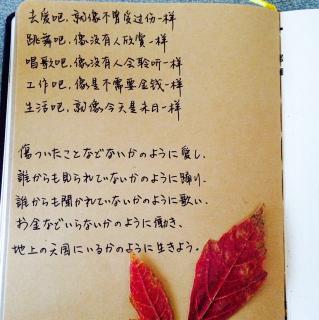 去爱吧，就像不曾受过伤一样
跳舞吧，像没有人欣赏一样
唱歌吧，像没有人会聆听一样
工作吧，像是不需要金钱一样
生活吧，就像今天是末日一样
傷ついたことなどないかのように愛し、
誰からも見られていないかのように踊り、
誰からも聞かれていないかのように歌い、
お金などいらないかのように働き、
地上の天国にいるかのように生きよう。